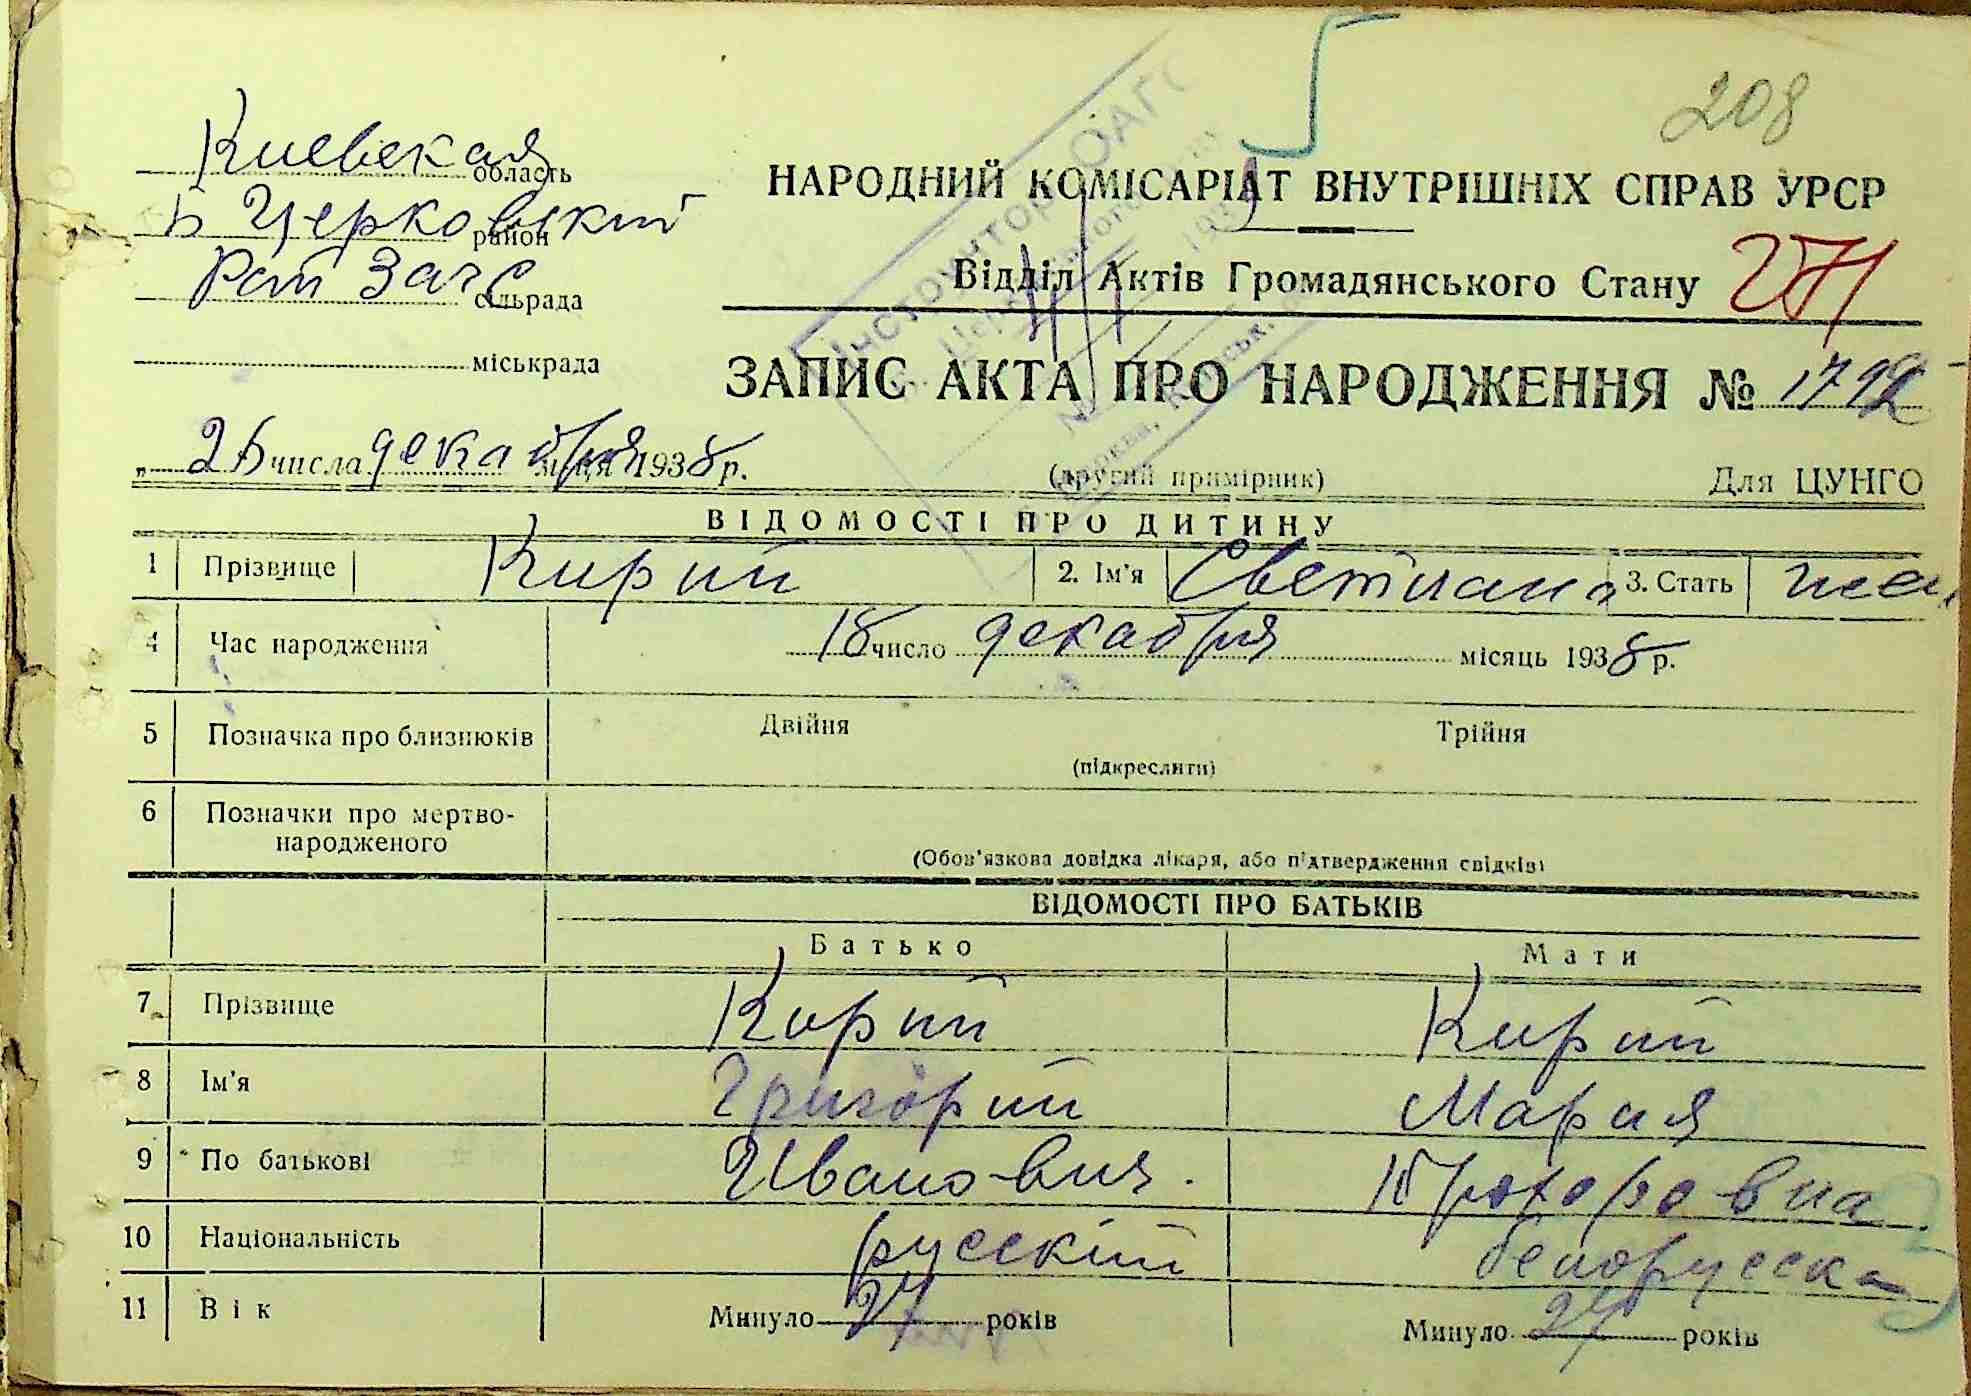 208
Киевская область
Б Церковский район
Рай Загс сільрада
міськрада
НАРОДНИЙ КОМІСАРІАТ ВНУТРІШНІХ СПРАВ УРСР
Відділ Актів Громадянського Стану 271
ЗАПИС АКТА ПРО НАРОДЖЕННЯ № 1792
„ 26 числа декабря м-ця 1938 р. (другий примірник) Для ЦУНГО
ВІДОМОСТІ ПРО ДИТИНУ
1 Прізвище Кирий 2. Ім'я Светлана 3. Стать жен.
4 Час народження 18 число декабря місяць 1938 р.
5 Позначка про близнюків Двійня Трійня
(підкреслити)
6 Позначки про мертво-
народженого
(Обов'язкова довідка лікаря, або підтвердження свідків)
ВІДОМОСТІ ПРО БАТЬКІВ
Батько Мати
7 Прізвище Кирий Кирий
8 Ім'я Григорий Мария
9 По батькові Иванович. Прохоровна
10 Національність русский белорусска
11 Вік Минуло 24 років Минуло 24 років